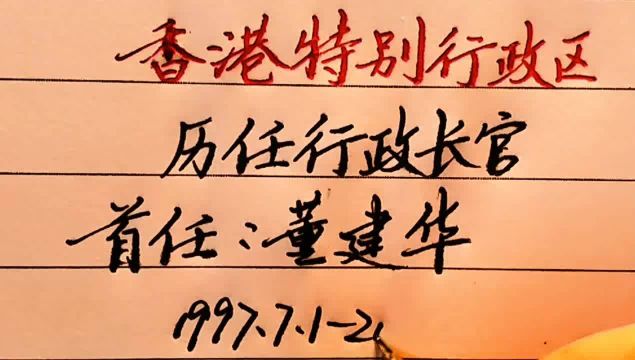 香港特别行政区
历任行政长官
首任:董建华
1997.7.1-2